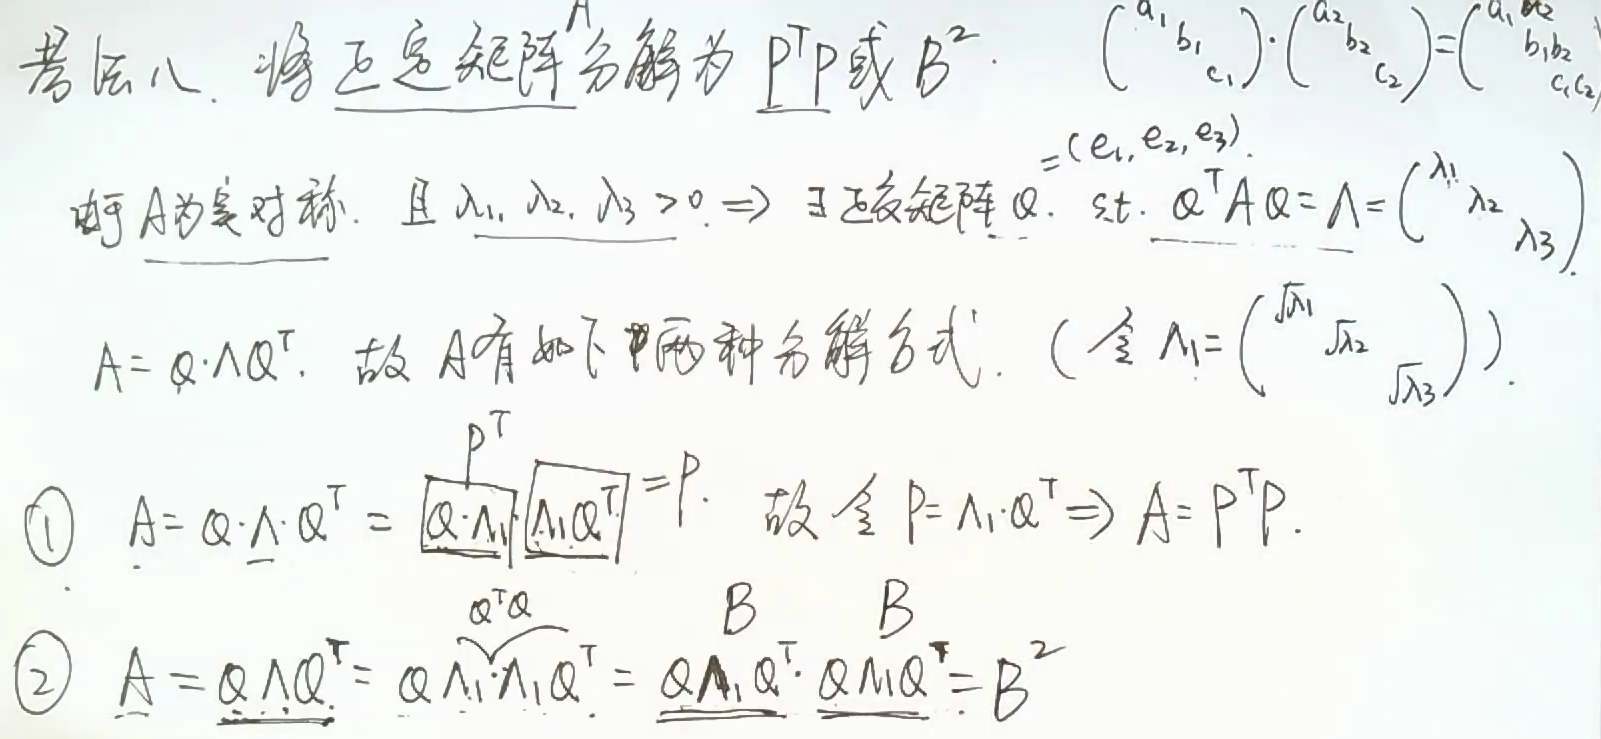 考法八. 将正定矩阵A分解为 PᵀP或 B². (a₁ b₁ c₁)·(a₂ b₂ c₂)=(a₁a₂ b₁b₂ c₁c₂)
由于A为实对称. 且 λ₁, λ₂, λ₃ >0. ⇒ ∃正交矩阵Q=(e₁, e₂, e₃). s.t. QᵀAQ=Λ=(λ₁ λ₂ λ₃).
A=Q·ΛQᵀ. 故 A有如下两种分解方式. (令 Λ₁=(√λ₁ √λ₂ √λ₃)).
Pᵀ
① A=Q·Λ·Qᵀ = Q·Λ₁·Λ₁Qᵀ =P. 故令 P=Λ₁·Qᵀ ⇒ A=PᵀP.
QᵀQ B B
② A=QΛQᵀ=QΛ₁·Λ₁Qᵀ=QΛ₁Qᵀ·QΛ₁Qᵀ=B²